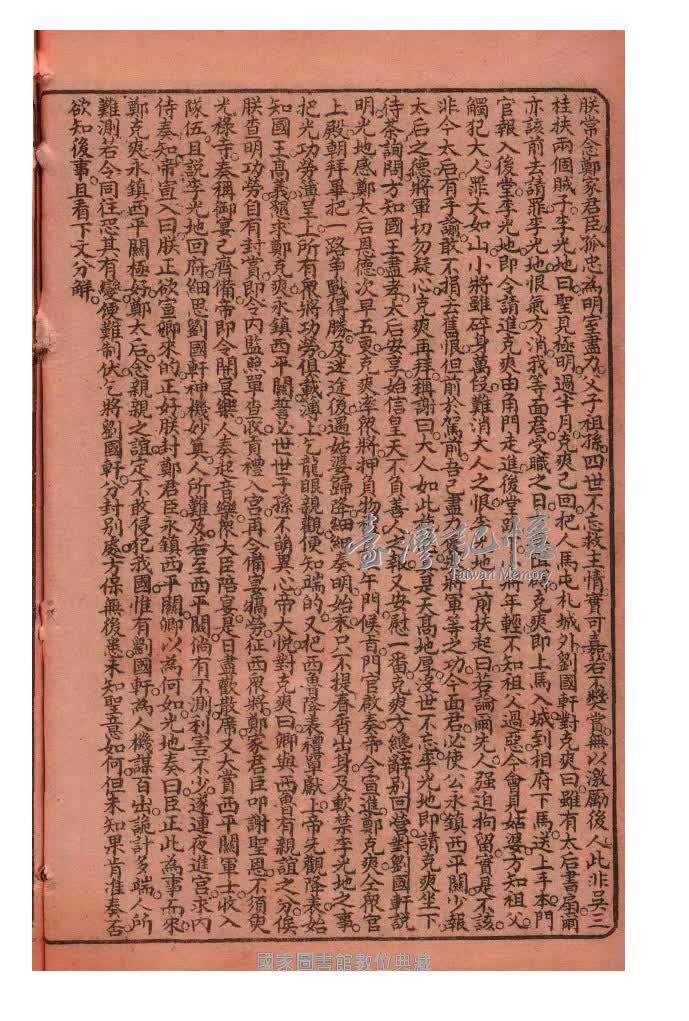 朕常念鄭家君臣孤忠為明室盡力父子祖孫四世不忘救主情實可嘉若不獎賞無以激勵後人此非吳三
桂扶兩個賊子李光地曰聖見極明過半月克塽已回把人馬屯札城外劉國軒對克塽曰雖有太后書扇爾
亦該前去請罪李光地恨氣方消我等面君受職之日克塽即上馬入城到相府下馬送上手本門
官報入後堂李光地即令請進克塽由角門走進後堂小將年輕不知祖父過惡今會見姑婆方知祖父
觸犯大人罪大如山小將雖碎身萬段難消大人之恨李光地上前扶起曰若論爾先人強迫拘留實是不該
非今太后有手諭敢不捐去舊恨但前於駕前吾已盡力將軍等之功今面君必使公永鎮西平關少報
太后之德將軍切勿疑心克塽再拜稱謝曰大人如此是天高地厚沒世不忘李光地即請克塽坐下
待茶詢問方知國王盡孝太后安享始信皇天不負善人報又安慰一番克塽方纔辭別回營對劉國軒說
明光地感鄭太后恩德次早五更克塽率眾將押負物午門候旨門官啟奏帝令宣進鄭克塽仝眾官
上殿朝拜畢把一路爭戰得勝及迷進後過姑婆歸降細細奏明始末只不提春香出身及軟禁李光地之事
把光功勞簿呈上所有眾將功勞俱載簿上乞龍眼親觀便知端的又把西魯降表禮單獻上帝先觀降表始
知國王高義懇求鄭克塽永鎮西平關誓必世世子孫不萌異心帝大悅對克塽曰卿與西魯有親誼之分俟
朕查明功勞自有封賞即令內監照單查收貢禮入宮再令備宴犒勞征西眾將鄭家君臣叩謝聖恩不須臾
光祿寺奏稱御宴已齊備帝即令開宴樂人奏起音樂眾大臣陪宴是日盡歡散席又大賞西平關軍士收入
隊伍且說李光地回府細思劉國軒神機妙算人所難及若至西平關倘有不測利害不少遂連夜進宮求內
侍奏知帝宣入曰朕正欲宣卿來的正好朕封鄭君臣永鎮西平關卿以為何如光地奏曰臣正此為事而來
鄭克塽永鎮西平關極好鄭太后念親親之誼定不敢侵犯我國惟有劉國軒為人機謀百出詭計多端人所
難測若令同往恐其有變便難制伏乞將劉國軒分封別處方保無後患未知聖意如何但未知果肯准奏否
欲知後事且看下文分解
臺灣記憶
Taiwan Memory
國家圖書館數位典藏